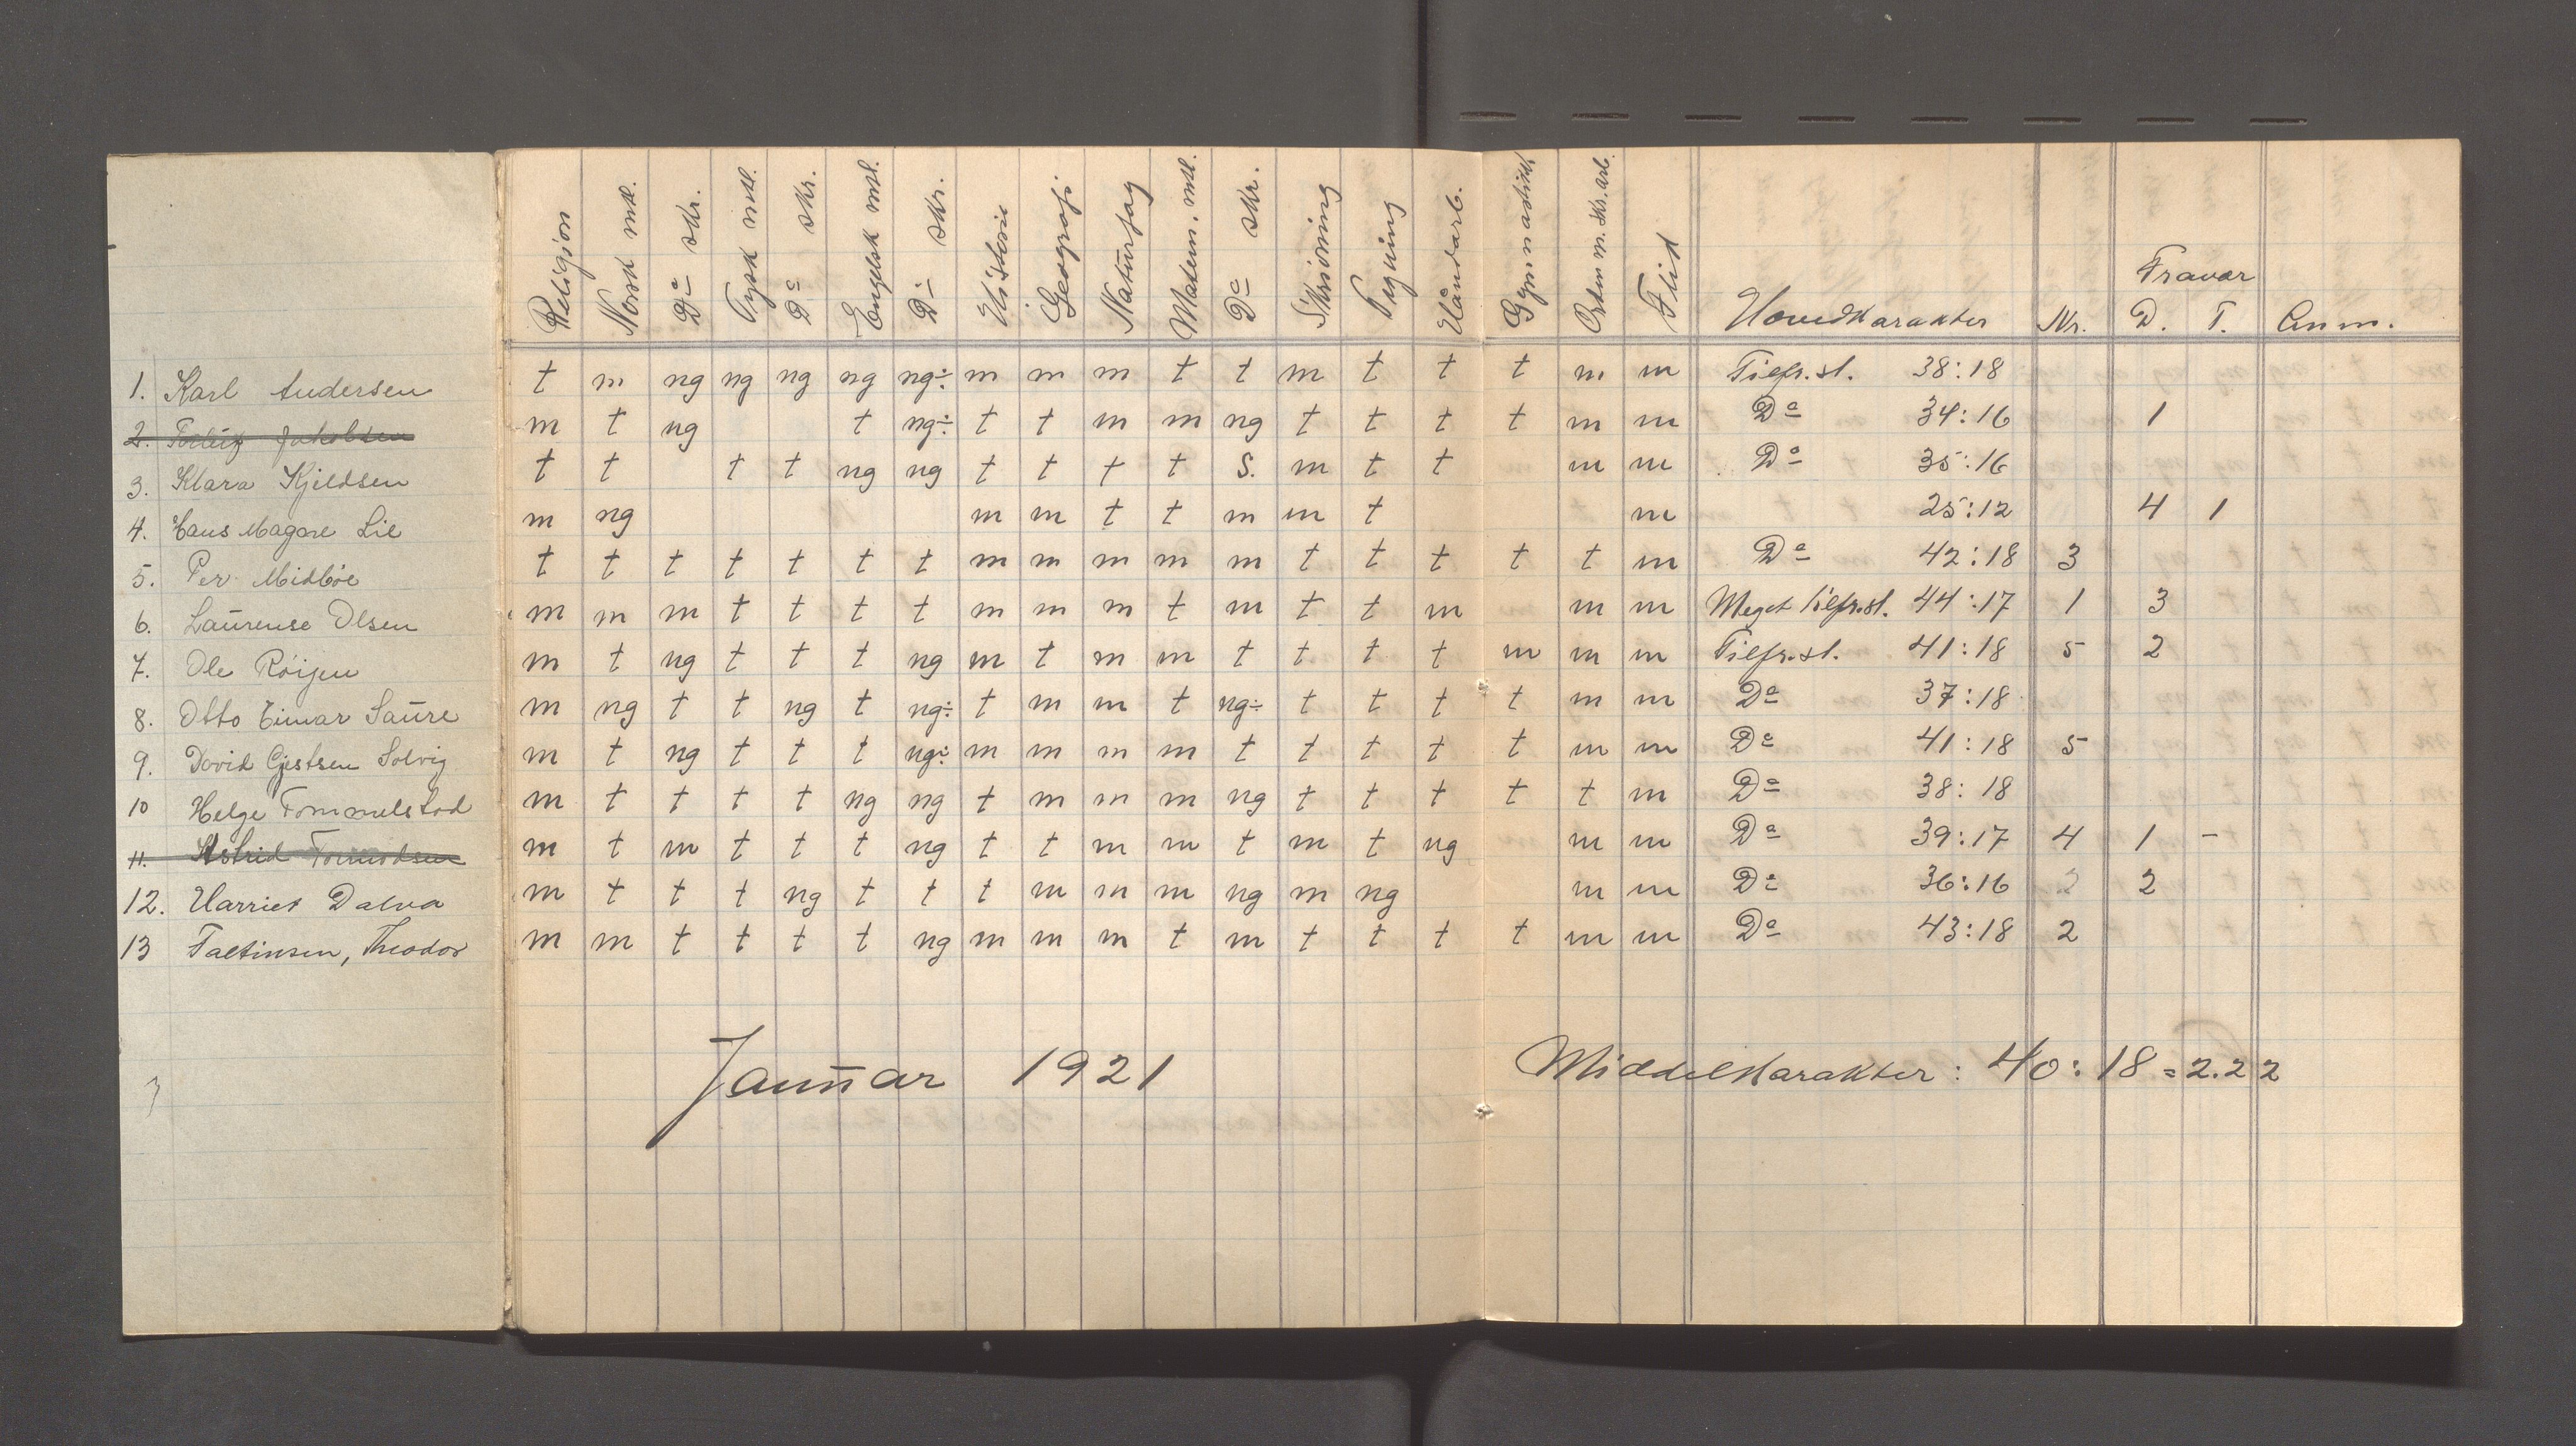 Religion Norsk mtl. Do skr. Tysk mtl. Do skr. Engelsk mtl. Do skr. Historie Geografi Naturfag Matem. mtl. Do skr. Skrivning Tegning Håndarb. Gymnastikk Orden m. skr. arb. Flid Hovedkarakter Nr. Fravær D. T. Anm.
1. Karl Andersen t m ng ng ng ng ng÷ m m m t t m t t t m m Tilfr.st. 38:18
2. Jakobsen m t ng t ng÷ t t m m ng t t t t m m Do 34:16 1
3. Klara Kjeldsen t t t t ng ng t t t t S. m t t m m Do 35:16
4. Hans Magare Lie m ng m m t t m m t m 25:12 4 1
5. Per Midbøe t t t t t t t m m m m m t t t t t m Do 42:18 3
6. Laurense Olsen m m m t t t t m m m t m t t m m m Meget tilfr.st. 44:17 1 3
7. Ole Röijen m t ng t t t ng m t m m t t t t m m m Tilfr.st. 41:18 5 2
8. Otto Einar Saure m ng t t ng t ng÷ t m m t ng÷ t t t t m m Do 37:18
9. David Gjestsen Solvig m t ng t t t ng÷ m m m m t t t t t m m Do 41:18 5
10 Helge Tommelstad m t t t t ng ng t m m m ng t t t t t m Do 38:18
11. Astrid Tormodsen m t m t t t ng t t m m t m t ng m m Do 39:17 4 1 -
12. Harriet Dalva m t t t ng t t t m m m ng m ng m m Do 36:16 2 2
13 Faltinsen, Theodor m m t t t t ng m m m t m t t t t m m Do 43:18 2
Januar 1921 Middelkarakter: 40:18 = 2.22